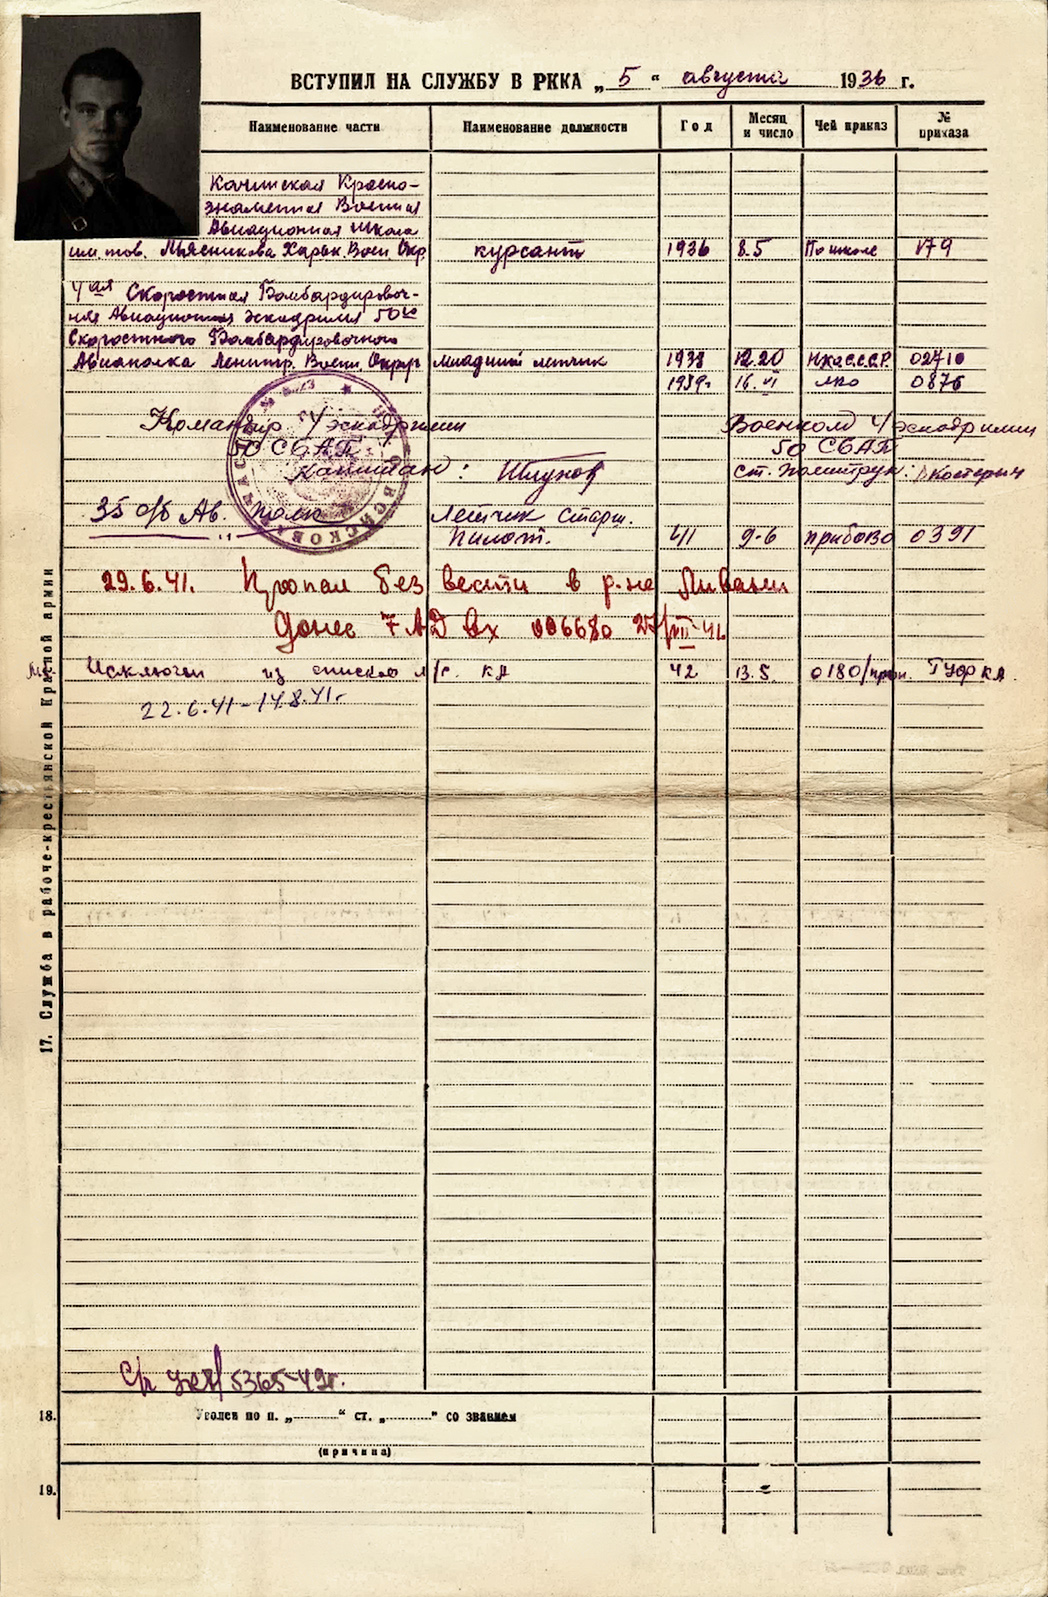 ВСТУПИЛ НА СЛУЖБУ В РККА „ 5 “ августа 1936 г.
Наименование части Наименование должности Год Месяц и число Чей приказ № приказа
Качинская Красно-
знаменная Военная
Авиационная школа
им. тов. Мясникова Харьк. Воен Окр. курсант 1936 8.5 По школе 179
4ая Скоростная Бомбардировоч-
ная Авиационная эскадрилья 50го
Скоростного Бомбардировочного
Авиаполка Ленингр. Воен. Округ младший летчик 1938 12.20 НКО СССР. 02410
1939г. 16.VI ЛВО 0876
Командир 4/эскадрильи Военком 4/эскадрильи
50 СБАП. 50 СБАП
капитан: ст. политрук:
35 об Ав. полк Летчик Старш.
пилот. 41 9.6 прибово 0391
29.6.41. Пропал без вести в р-не Ливани
Донес 7 АД Вх 006680
Исключен из списков л/с. КА 42 13.5. 0180/проп. ГУФКА
22.6.41-14.8.41г.
17. Служба в рабоче-крестьянской Красной армии
5365-49г.
18. Уволен по п. „ “ ст. „ “ со званием
(причина)
19.